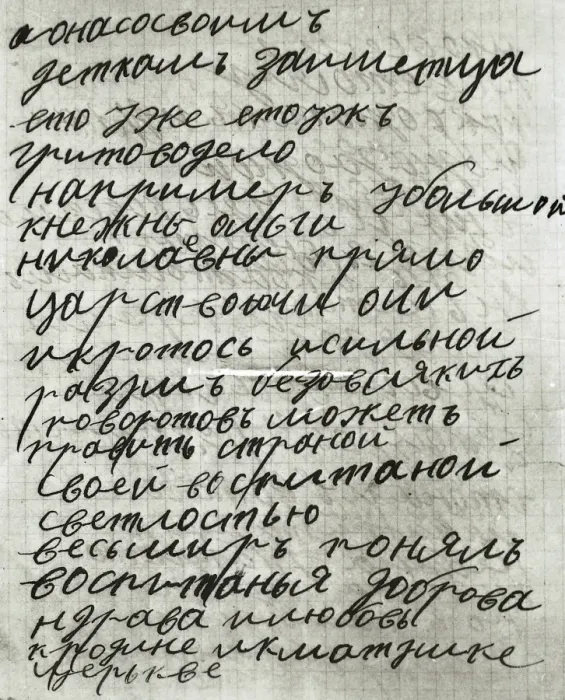 аонасосвоимъ
деткамъ займетца
ето уже етоужъ
гритоводело
например ъ убольшой
кнежны ольги
николаевны прямо
царствоючи оии
икротось исильной
разумъ безовсякихъ
говоротовъ можетъ
править страной
своей воспитаной
светлостью
весьмиръ понялъ
воспитанья доброва
ндрава илюбовь
кродине икматушке
церькве